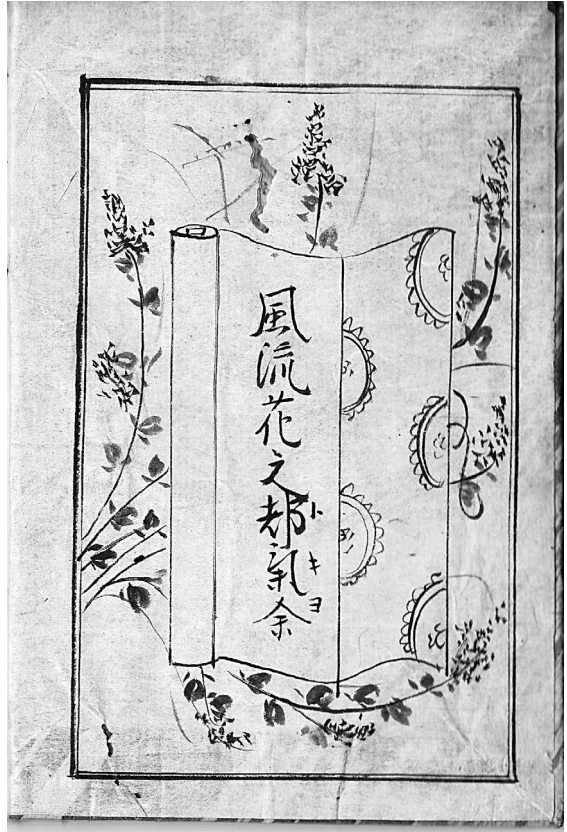 風流花之都氣余
トキヨ